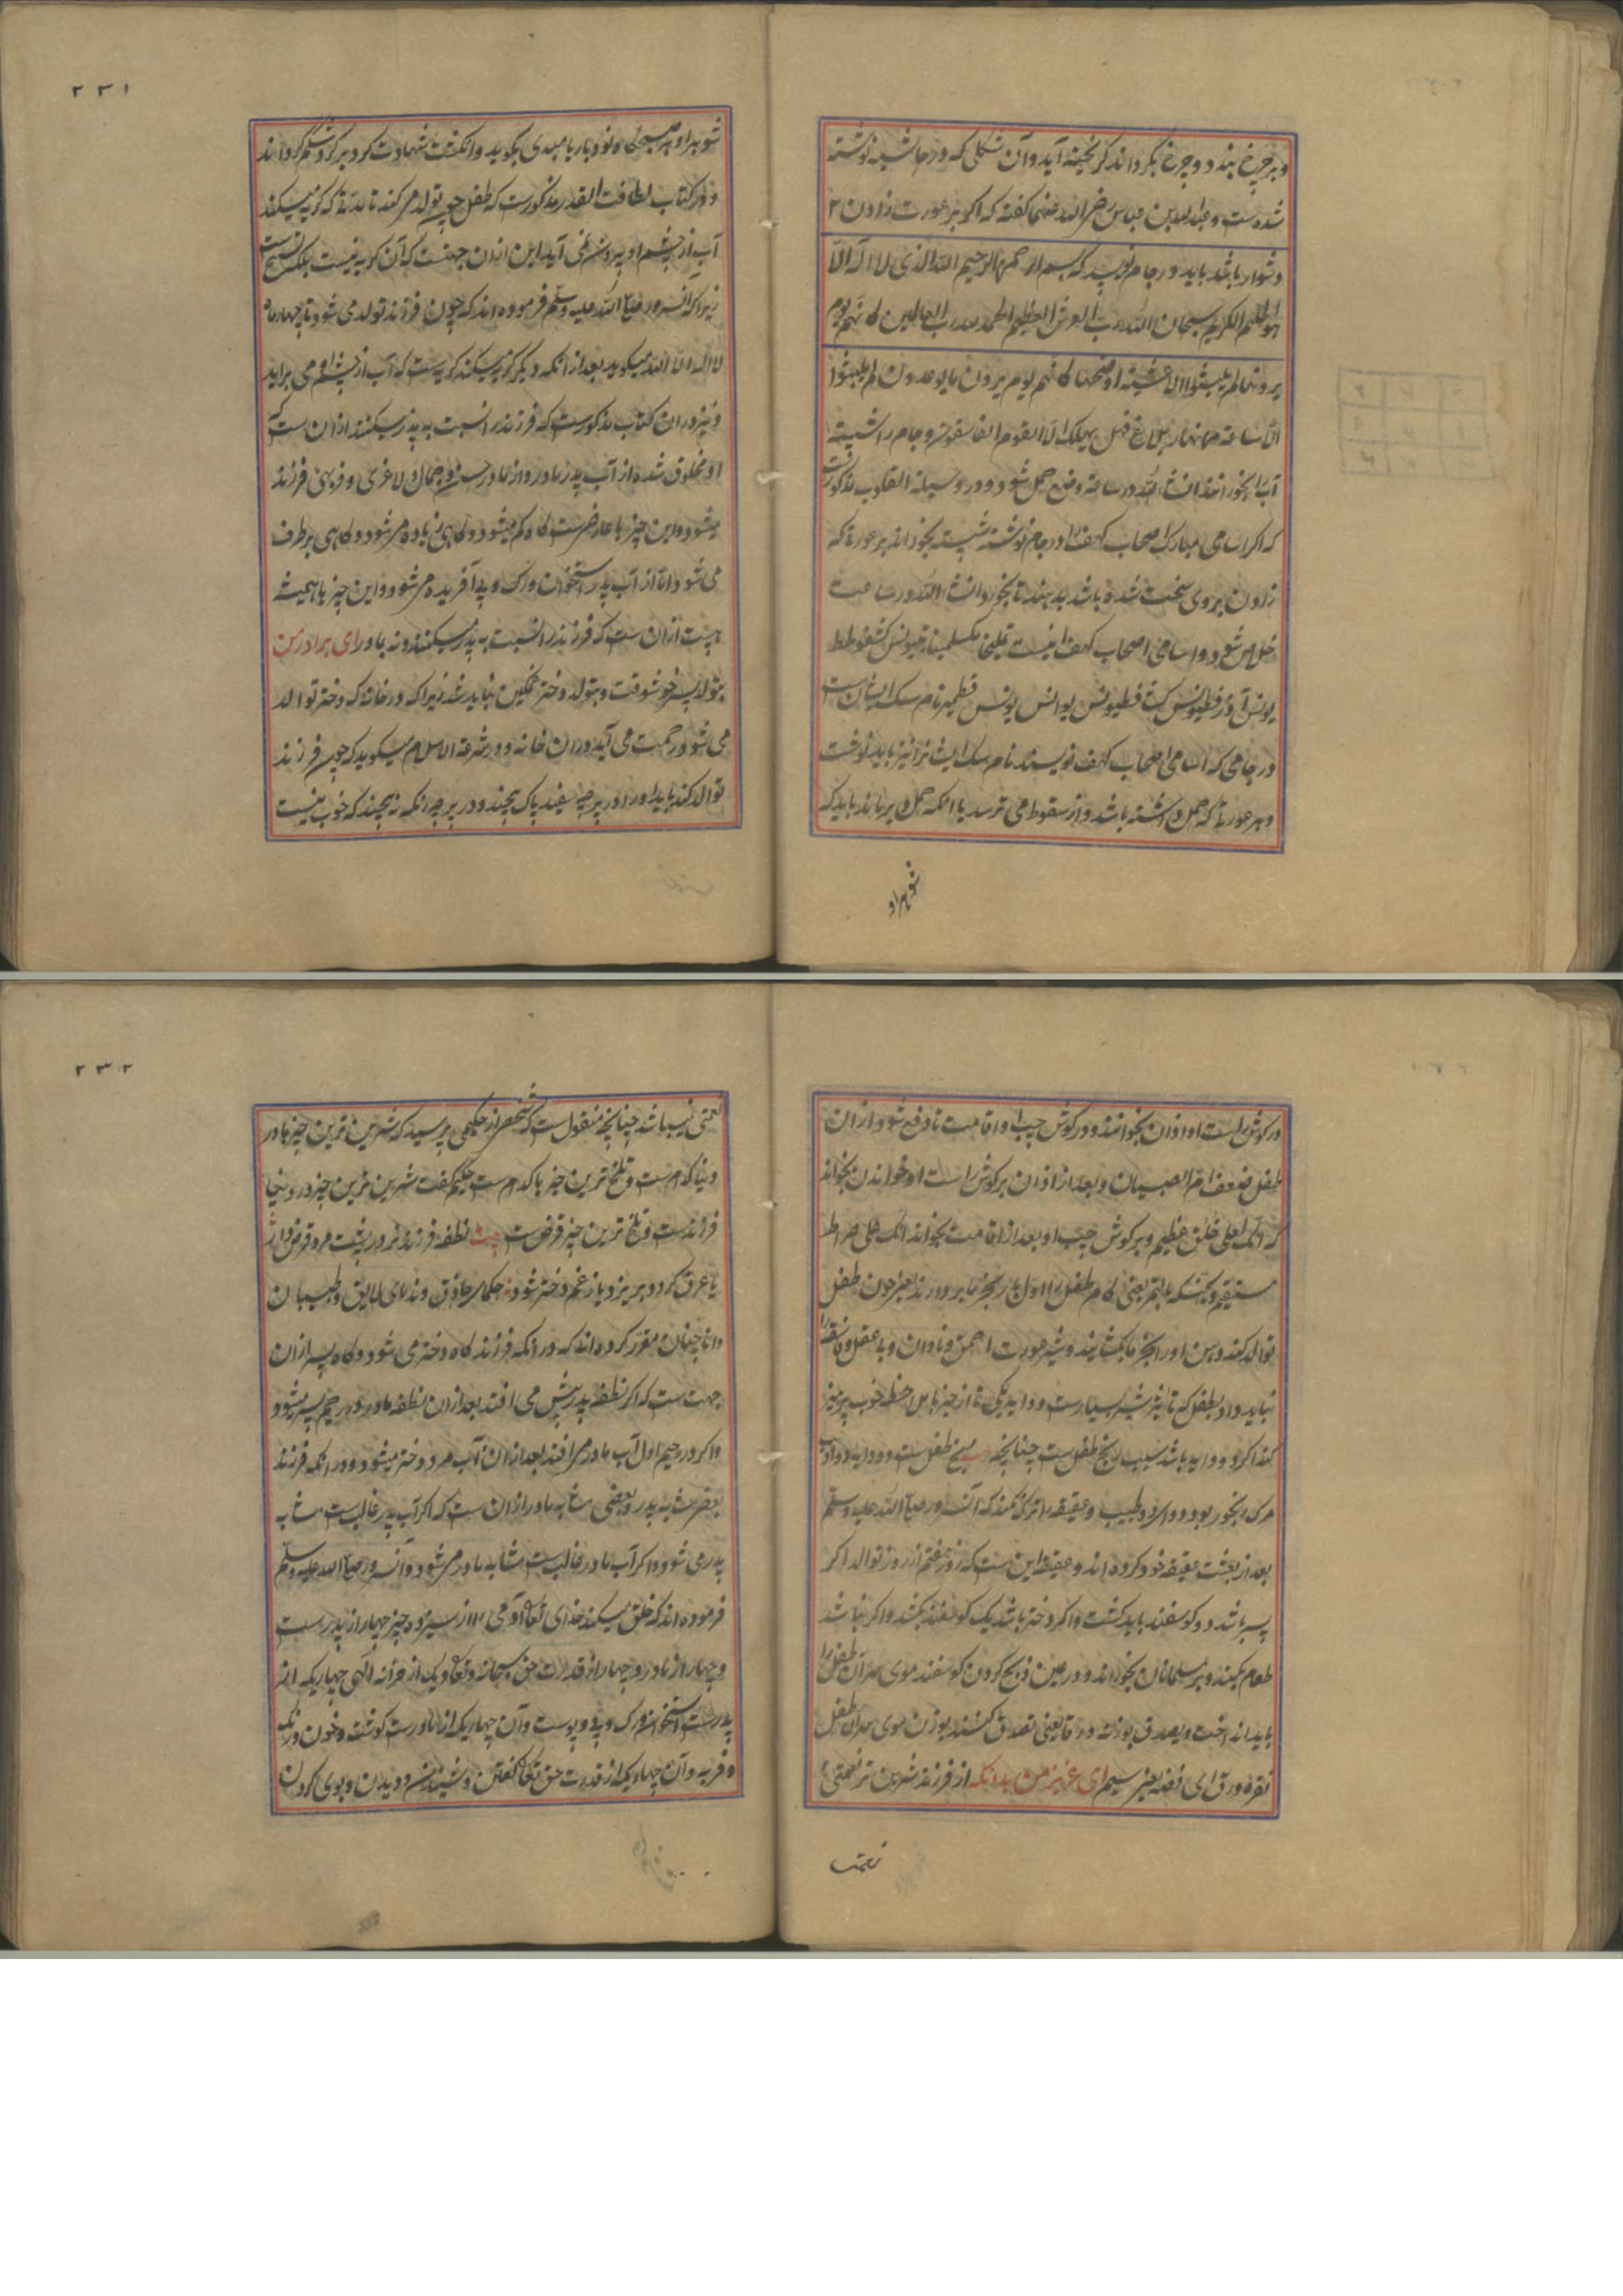 و بر چرخ بندد و چرخ بگرداند گریخته آید و آن شکلی که در حاشیه نوشته
شده است و عبدالله بن عباس رضی الله عنهما گفته که اگر بر عورت زادن
دشوار باشد باید در جام نویسد که بسم الله الرحمن الرحیم الله الذی لا اله الا
هو الکریم سبحان الله رب العرش العظیم الحمد لله رب العالمین کانهم یوم
یرونها لم یلبثوا الا عشیة او ضحها کانهم یوم یرون ما یوعدون لم یلبثوا
الا ساعة من نهار بلاغ فهل یهلک الا القوم الفاسقون و جام را شسته
آب را بخورانند ان شاء الله در ساعت وضع حمل شود و در وسیلة القلوب مذکورست
که اگر اسامی مبارک اصحاب کهف را در جام نوشته شسته بخورانند بر عورتی که
زادن بر وی سخت شده باشد بدهند تا بخورد ان شاء الله در ساعت
خلاص شود و اسامی اصحاب کهف اینست یملیخا مکسلمینا کشفوطط
یوانس قطمیر نام سک ایشان است
در جامی که اسامی اصحاب کهف نویسند نام سک ایشان را نیز باید نوشت
و هر عورتی که حمل داشته باشد و از سقوط می ترسد یا آنکه حمل بر باید که
شوهر او
۲۳۱
شوهر او هر صبحکاه نود بار یا مبدی بگوید و انکشت شهادت کرد بر کرد شکم گرداند
و در کتاب لطافت القدر مذکورست که طفل چون تولد می کند تا مدتی که گریه میکند
آب از چشم او بیرون نمی آید این از ان جهتست که آن گریه نیست بلکه تسبیح ست
زیرا که آنسرور صلی الله علیه و سلم فرموده اند که چون فرزند تولد می شود تا چهار ماه
لا اله الا الله میگوید بعد از آنکه دیگر گریه میکند گریه ست که آب از چشم او می براید
و نیز در ان کتاب مذکورست که فرزند را نسبت به پدر میکنند از ان ست که
او مخلوق شده از آب پدر و مادر و از مادر حسن و جمال و لاغری و فربهی فرزند
میشود و این چیزها عارضی ست گاه کم میشود و گاهی زیاده می شود و گاهی بر طرف
می شود و اما از آب پدر استخوان و رگ و پی آفریده می شود و این چیزها همیشه
هست از ان ست که فرزند را نسبت به پدر میکنند و نه بمادر ای برادر من
بتولد پسر خوشوقت و بتولد دختر غمگین نباید شد زیرا که در خانه که دختر توالد
می شود رحمت می آید در ان خانه و در شرعة الاسلام میگوید که چون فرزند
توالد کند باید او را در پرچه سفید پاک پیچند و در پرچه رنگه نه پیچند که خوب نیست
در گوش راست او اذان بخوانند و در گوش چپ او اقامت تا دفع شود از ان
طفل ضعف ام الصبیان و بعد از اذان بر گوش راست او خواندن بخواند
که انک لعلی خلق عظیم و بر گوش چپ او بعد از اقامت بخواند انک علی صراط
مستقیم و یحنکه بالتمر یعنی کام طفل را اول بار بخرما بردارند یعنی چون طفل
توالد کند دهن او را بخرما بکشایند و شیر عورت احمق و نادان و بی عقل و فاسقه را
نباید داد بطفل که تاثیر شیر بسیارست و دایه یکی تا از چیزهای خوب پرهیز
کند اگر دو دایه باشد سبب رنج طفل ست چنانچه بیت رنج طفل ست دو دایه دو ادب
مرگ رنجور بود دو دارو و طبیب و عقیقه را ترک نکند که آنسرور صلی الله علیه و سلم
بعد از بعثت عقیقه خود کرده اند و عقیقه این ست که روز هفتم از روز توالد اگر
پسر باشد دو گوسفند باید کشت و اگر دختر باشد یک گوسفند بکشد و اگر نباشد
طعام بکند و بر مسلمانان بخوراند و در عین ذبح کردن گوسفند موی سر آن طفل را
باید انداخت و یصدق بوزنه ورقا یعنی تصدق کنند بوزن موی سر آن طفل
نقره ورق ای فضه یعنی سیم ای عزیز من بدانکه از فرزند شیرین تر نعمتی
نعمتی
۲۳۲
نعمتی نمیباشد چنانچه منقول ست که شخصی از حکیمی پرسید که شیرین ترین چیزها در
دنیا کدام ست و تلخ ترین چیزها کدام ست حکیم گفت شیرین ترین چیز در دنیا
فرزندست و تلخ ترین چیز قرض ست بیت نطفه فرزند در پشت مرد قرض دار
یا عرق گردد بریزد یا ز غم دختر شود حکمای حاذق و ندمای لایق و طبیبان
دانا چنان مقرر کرده اند که در آنکه فرزند گاه دختر می شود و گاه پسر از ان
جهت ست که اگر نطفه پدر پیش می افتد بعد از ان نطفه مادر در رحم پسر میشود
و اگر در رحم اول آب مادر می افتد بعد از ان آب مرد دختر میشود و در آنکه فرزند
بعضی مشابه پدر و بعضی مشابه مادر از ان ست که اگر آب پدر غالب ست مشابه
پدر می شود و اگر آب مادر غالب ست مشابه مادر می شود و آنسرور صلی الله علیه و سلم
فرموده اند که خلق میکند خدای تعالی آدمی را از سیزده چیز چهار از پدر ست
و چهار از مادر و چهار از قدرت حق سبحانه و تعالی و یک از خزانه الهی چهار یکه از
پدر ست استخوان و رگ و پی و پوست و آن چهار یکه از مادر ست گوشت و خون و رنگ
و فربه و آن چهار یکه از قدرت حق تعالی گفتن و شنیدن و دیدن و بوی کردن